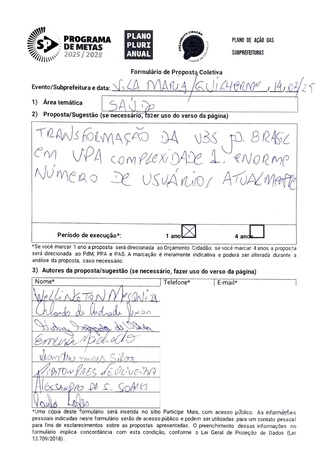 PROGRAMA
DE METAS
2025/2028
PLANO
PLURI
ANUAL
PLANO DE AÇÃO DAS
SUBPREFEITURAS
Formulário de Proposta Coletiva
Evento/Subprefeitura e data: VILA MARIA/GUILHERME, 19/03/25
1) Área temática SAÚDE
2) Proposta/Sugestão (se necessário, fazer uso do verso da página)
TRANSFORMAÇÃO DA UBS JD BRASIL
EM UPA COMPLEXIDADE 1, ENORME
NÚMERO DE USUÁRIOS ATUALMENTE
Período de execução*: 1 ano 4 anos
*Se você marcar 1 ano a proposta será direcionada ao Orçamento Cidadão; se você marcar 4 anos a proposta
será direcionada ao PdM, PPA e PAS. A marcação é meramente indicativa e poderá ser alterada durante a
análise da proposta, caso necessário.
3) Autores da proposta/sugestão (se necessário, fazer uso do verso da página)
Nome* Telefone* E-mail
WELLINGTON
de Andrade Junior
Silva
DE OLIVEIRA
ALESSANDRO DA S.
*Uma cópia deste formulário será inserida no sítio Participe Mais, com acesso público. As informações
pessoais indicadas neste formulário serão de acesso público e podem ser utilizadas para um contato pessoal
para fins de esclarecimentos sobre as propostas apresentadas. O preenchimento dessas informações no
formulário implica concordância com esta condição, conforme a Lei Geral de Proteção de Dados (Lei
13.709/2018).